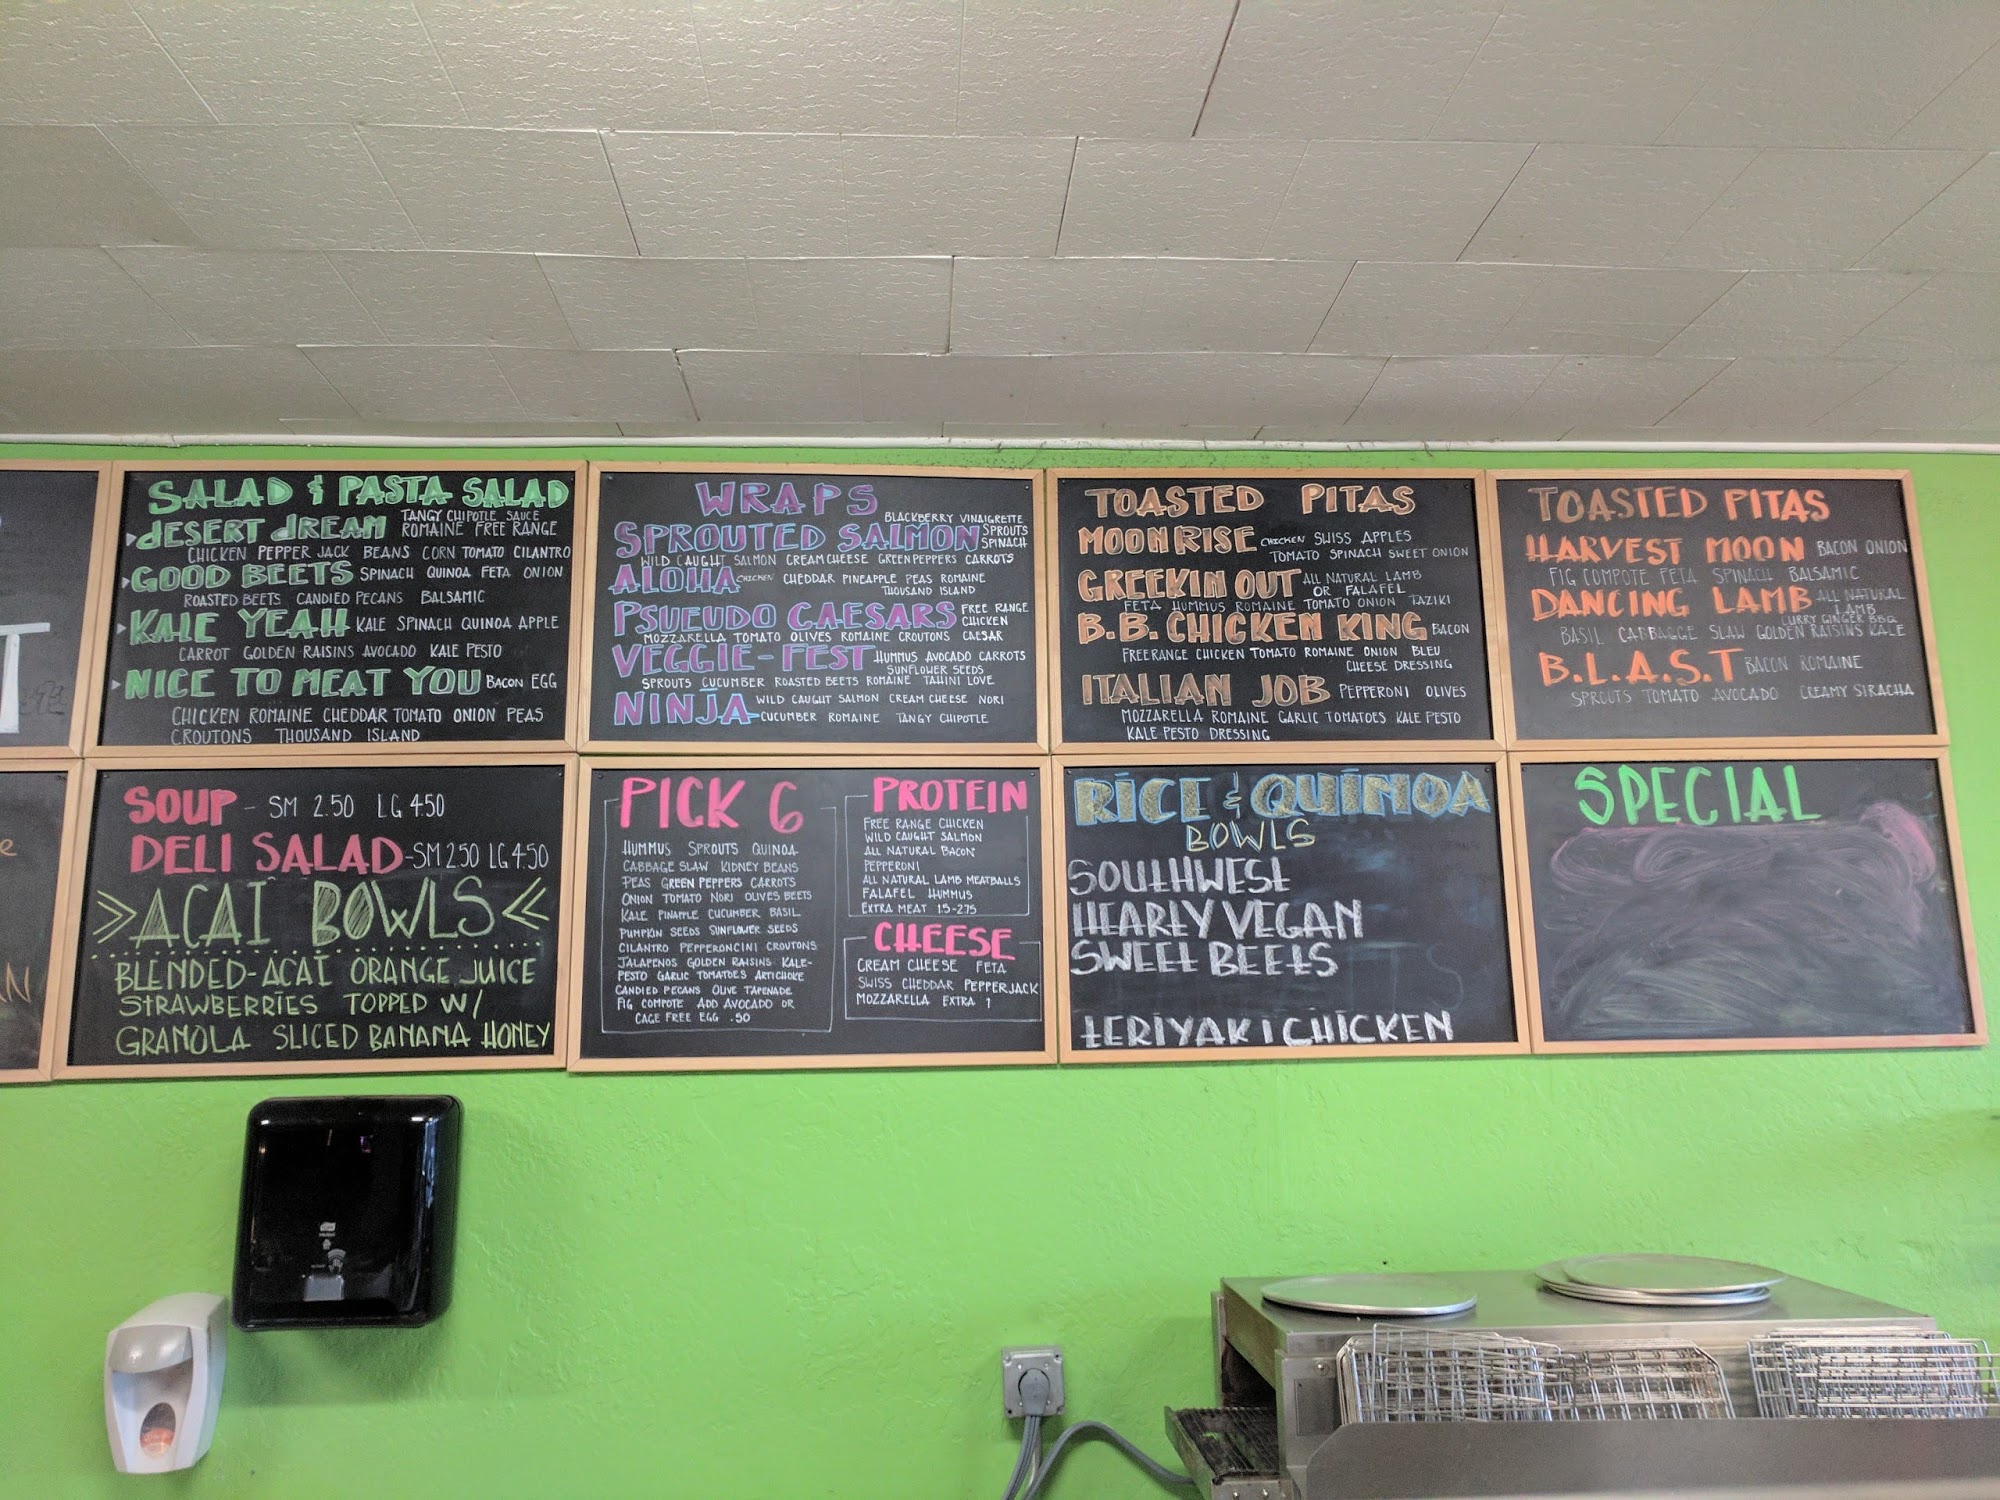 SALAD & PASTA SALAD
DESERT DREAM TANGY CHIPOTLE SAUCE
ROMAINE FREE RANGE
CHICKEN PEPPER JACK BEANS CORN TOMATO CILANTRO
GOOD BEETS SPINACH QUINOA FETA ONION
ROASTED BEETS CANDIED PECANS BALSAMIC
KALE YEAH KALE SPINACH QUINOA APPLE
CARROT GOLDEN RAISINS AVOCADO KALE PESTO
NICE TO MEAT YOU BACON EGG
CHICKEN ROMAINE CHEDDAR TOMATO ONION PEAS
CROUTONS THOUSAND ISLAND
WRAPS
BLACKBERRY VINAIGRETTE
SPROUTED SALMON SPROUTS
SPINACH
WILD CAUGHT SALMON CREAM CHEESE GREEN PEPPERS CARROTS
ALOHA CHICKEN CHEDDAR PINEAPPLE PEAS ROMAINE
THOUSAND ISLAND
PSUEUDO CAESARS FREE RANGE
CHICKEN
MOZZARELLA TOMATO OLIVES ROMAINE CROUTONS CAESAR
VEGGIE-FEST HUMMUS AVOCADO CARROTS
SUNFLOWER SEEDS
SPROUTS CUCUMBER ROASTED BEETS ROMAINE TAHINI LOVE
NINJA WILD CAUGHT SALMON CREAM CHEESE NORI
CUCUMBER ROMAINE TANGY CHIPOTLE
TOASTED PITAS
MOONRISE CHICKEN SWISS APPLES
TOMATO SPINACH SWEET ONION
GREEKIN OUT ALL NATURAL LAMB
OR FALAFEL
FETA HUMMUS ROMAINE TOMATO ONION TAZIKI
B.B. CHICKEN KING BACON
FREE RANGE CHICKEN TOMATO ROMAINE ONION BLEU
CHEESE DRESSING
ITALIAN JOB PEPPERONI OLIVES
MOZZARELLA ROMAINE GARLIC TOMATOES KALE PESTO
KALE PESTO DRESSING
TOASTED PITAS
HARVEST MOON BACON ONION
FIG COMPOTE FETA SPINACH BALSAMIC
DANCING LAMB ALL NATURAL
LAMB
CURRY GINGER BBQ
BASIL CABBAGGE SLAW GOLDEN RAISINS KALE
B.L.A.S.T BACON ROMAINE
SPROUTS TOMATO AVOCADO CREAMY SIRACHA
SOUP - SM 2.50 LG 4.50
DELI SALAD - SM 2.50 LG 4.50
>> ACAI BOWLS <<
BLENDED-ACAI ORANGE JUICE
STRAWBERRIES TOPPED W/
GRANOLA SLICED BANANA HONEY
PICK 6
HUMMUS SPROUTS QUINOA
CABBAGE SLAW KIDNEY BEANS
PEAS GREEN PEPPERS CARROTS
ONION TOMATO NORI OLIVES BEETS
KALE PINAPLE CUCUMBER BASIL
PUMPKIN SEEDS SUNFLOWER SEEDS
CILANTRO PEPPERONCINI CROUTONS
JALAPENOS GOLDEN RAISINS KALE-
PESTO GARLIC TOMATOES ARTICHOKE
CANDIED PECANS OLIVE TAPENADE
FIG COMPOTE ADD AVOCADO OR
CAGE FREE EGG .50
PROTEIN
FREE RANGE CHICKEN
WILD CAUGHT SALMON
ALL NATURAL BACON
PEPPERONI
ALL NATURAL LAMB MEATBALLS
FALAFEL HUMMUS
EXTRA MEAT 1.5-2.75
CHEESE
CREAM CHEESE FETA
SWISS CHEDDAR PEPPERJACK
MOZZARELLA EXTRA 1
RICE & QUINOA
BOWLS
SOUTHWEST
HEARLY VEGAN
SWEET BEETS
TERIYAKI CHICKEN
SPECIAL